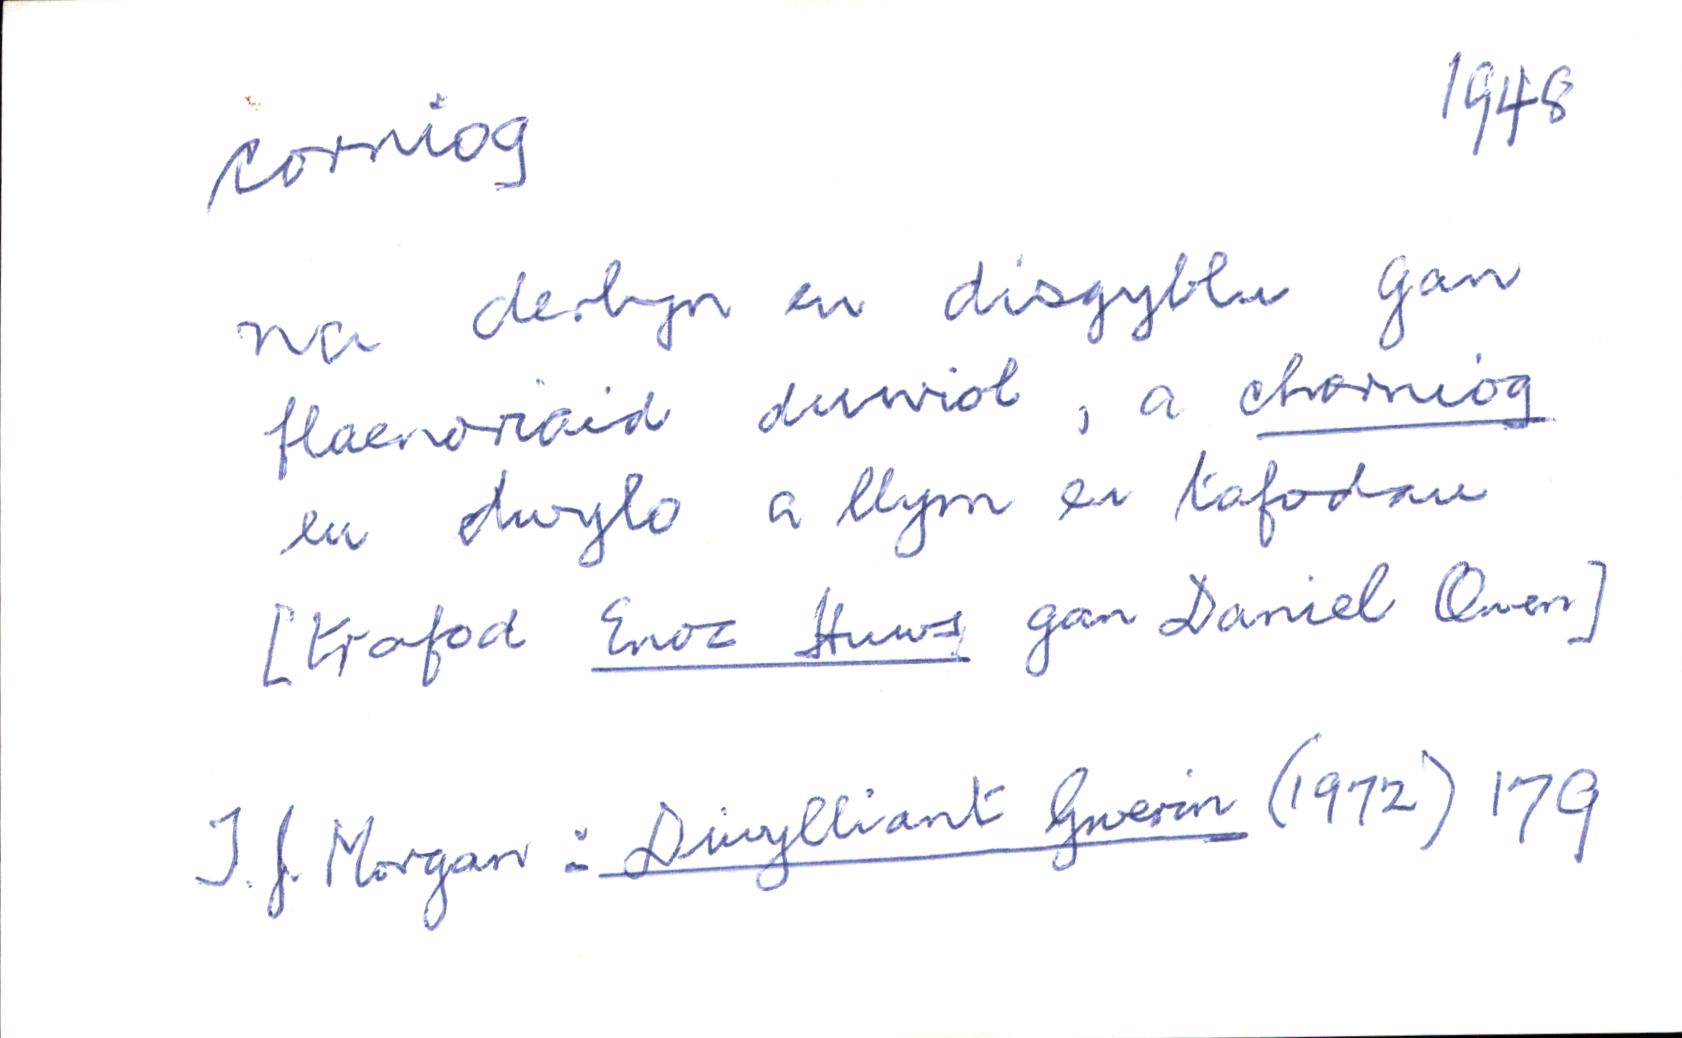 corniog 1948
na derbyn eu disgyblu gan
flaenoriaid duwiol, a chorniog
eu dwylo a llym eu tafodau
[trafod Enoc Huws gan Daniel Owen]
T. J. Morgan : Diwylliant Gwerin (1972) 179